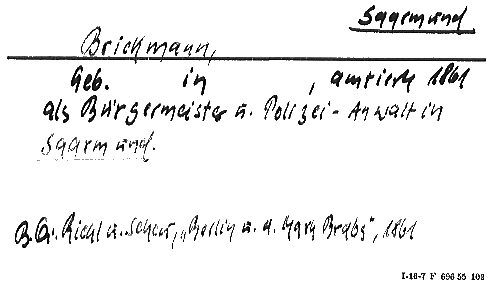 Saarmund
Brickmann,
Geb. in , amtierte 1861
als Bürgermeister u. Polizei-Anwalt in
Saarmund.
Riehl u. Scheu, „Berlin u. d. Mark Brdbg", 1861
I-16-7 F 696 55 103